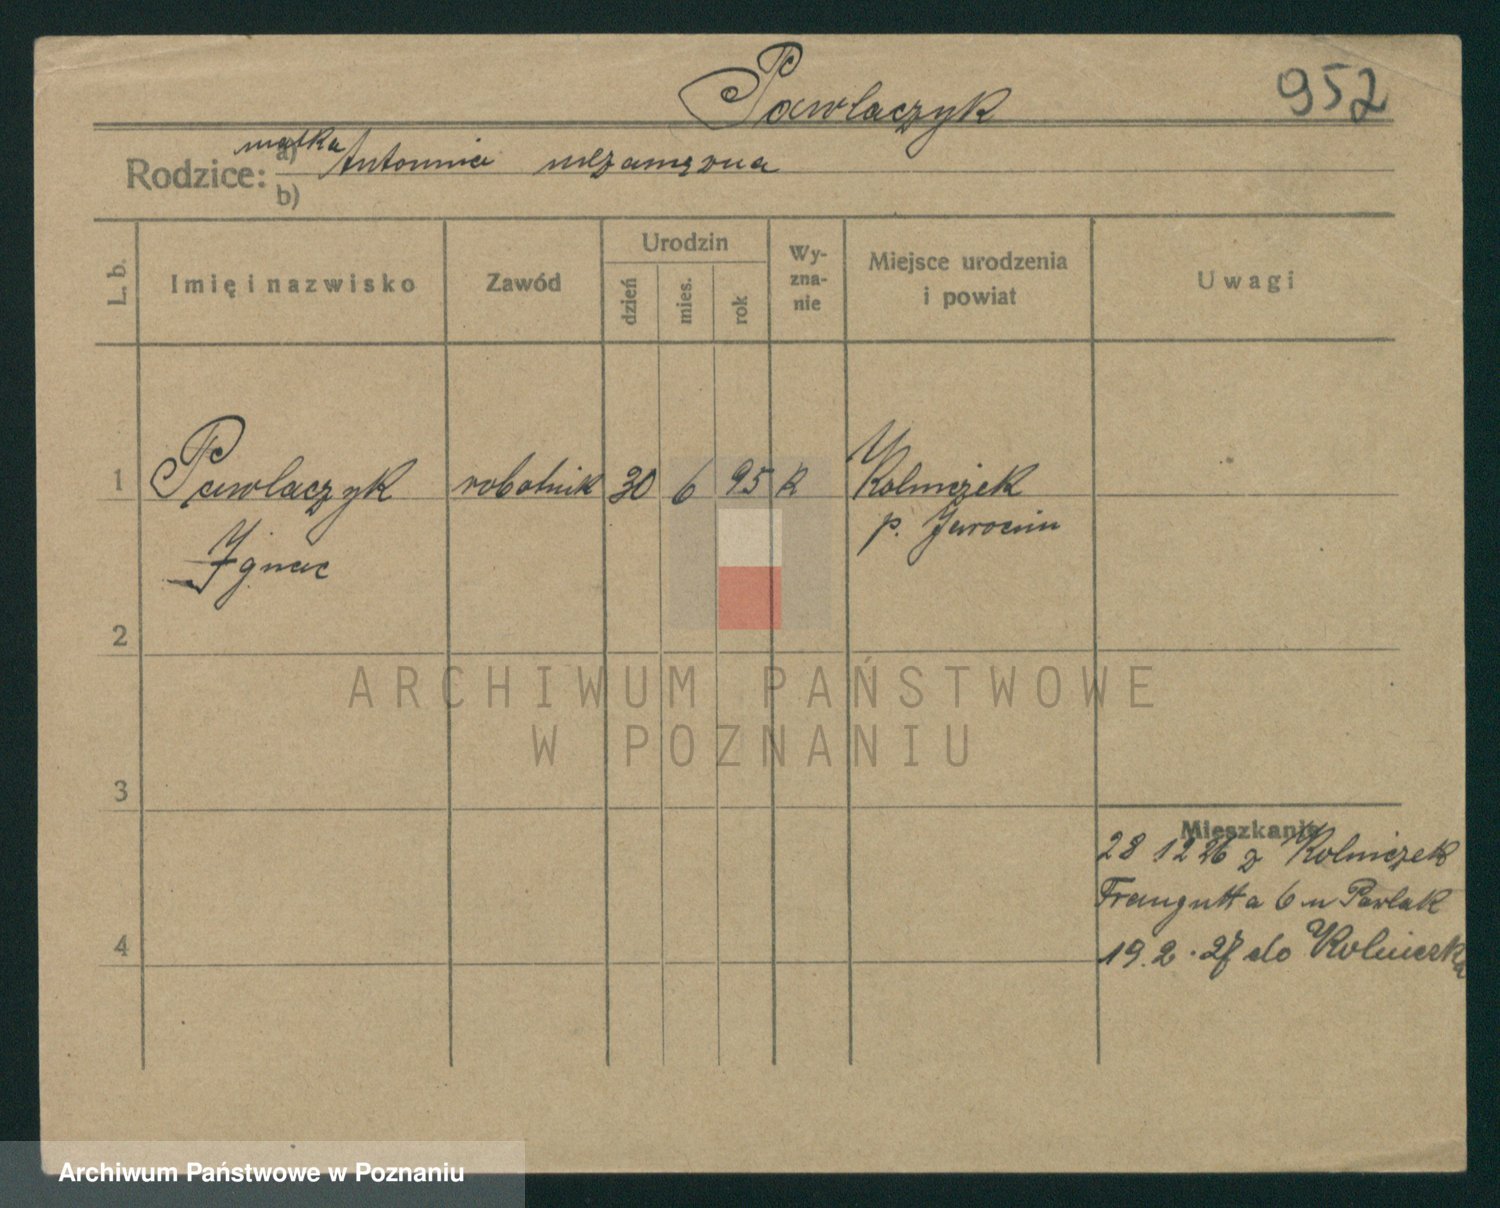 Pawlaczyk 952
matka
Rodzice: a) Antonina niezamężna
b)
L. b. Imię i nazwisko Zawód Urodzin dzień mies. rok Wy-zna-nie Miejsce urodzenia i powiat Uwagi
1 Pawlaczyk robotnik 30 6 95 k Kolniczek
Ignac p. Jarocin
2
3
4
Mieszkanie
28 12 26 z Kolniczek
Traugutta 6 u Pawlak
19.2.27 do Kolniczka
ARCHIWUM PAŃSTWOWE
W POZNANIU
Archiwum Państwowe w Poznaniu